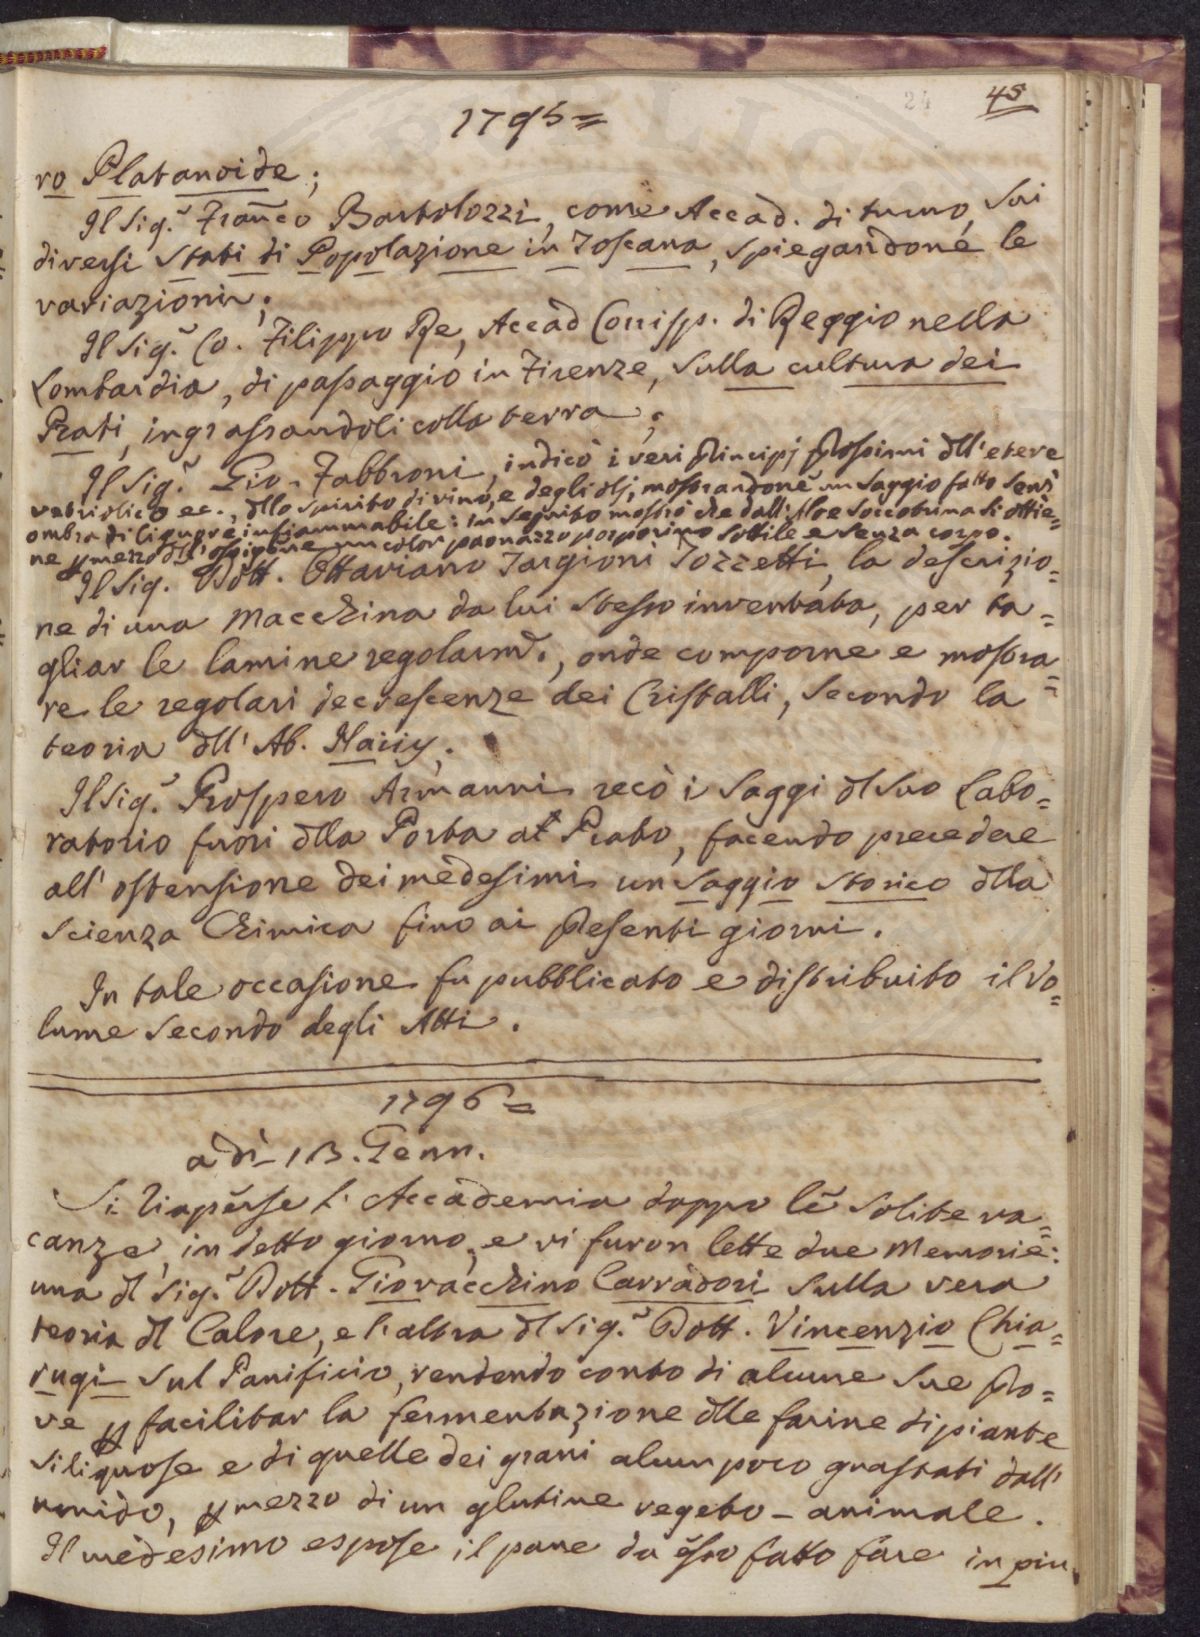 24
45
1795=
ro Platanoide;
Il Sig.r Franco Bartolozzi, come Accad. di turno, sui
diversi Stati di Popolazione in Toscana, spiegandone le
variazioni;
Il Sig.r Co. Filippo Re, Accad Corrisp. di Reggio nella
Lombardia, di passaggio in Firenze, sulla cultura dei
Prati, ingrassandoli colla terra;
Il Sig.r Gio. Fabbroni, indicò i veri Principj Prossimi dll'etere
vetriolico ec., dllo spirito di vino, e degli olj, mostrandone un saggio fatto senz'
ombra di liquore infiammabile: in seguito mostrò che dall'Aloe soccotrina si ottie=
ne p mezzo dll'ossigene un color paonazzo porporino sottile e senza corpo.
Il Sig. Dott. Ottaviano Targioni Tozzetti, la descrizio=
ne di una Macchina da lui stesso inventata, per ta=
gliar le lamine regolarm., onde comporne e mostra=
re le regolari decrescenze dei Cristalli, secondo la
teoria dll' Ab. Haüy.
Il Sig.r Prospero Armanni recò i Saggi dl suo Labo=
ratorio fuori dlla Porta al Prato, facendo precedere
all' ostensione dei medesimi un saggio storico dlla
Scienza Chimica fino ai Presenti giorni.
In tale occasione fu pubblicato e distribuito il Vo=
lume Secondo degli Atti.
1796=
adì 13. Genn.
Si riaperse l' Accademia doppo le solite va=
canze, in detto giorno, e vi furon lette due Memorie:
una dl Sig.r Dott. Giovacchino Carradori sulla vera
teoria dl Calore, e l'altra dl Sig.r Dott. Vincenzio Chia=
rugi sul Panificio, rendendo conto di alcune sue Pro=
ve p facilitar la fermentazione dlle farine di piante
siliquose e di quelle dei grani alcun poco guastati dall'
umido, p mezzo di un glutine vegeto-animale.
Il medesimo espose il pane da esso fatto fare in piu